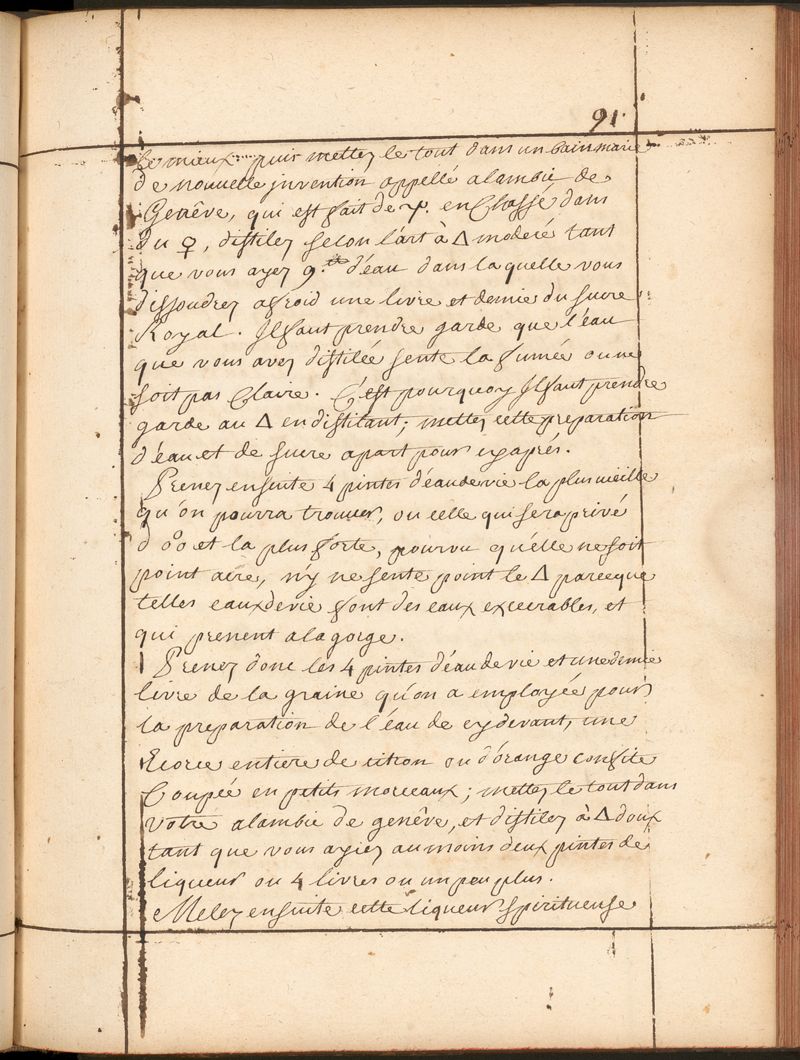 91
Le mieux puis mettez le tout dans un bain marie
de nouvelle jnvention appellé alambic de
Genêve, qui est fait de ♃. enChassé dans
du ♀, distilez selon l'art à △ moderé tant
que vous ayez 9. lb d'eau dans laquelle vous
dissoudrez afroid une livre et demie du sucre
Royal. Jl faut prendre garde que l'eau
que vous avez distilée sente la fumée ou ne
soit pas Claire. C'est pourquoy Jl faut prendre
garde au △ en distilant; mettez cette preparation
d'eau et de sucre apart pour cy aprés.
Prenez ensuite 4 pintes d'eaudevie la plus vieille
qu'on pourra trouver, ou celle qui sera privé
d et la plus forte, pourvu qu'elle ne soit
point acre, n'y ne sente point le △ parceque
telles eauxdevie sont des eaux execrables, et
qui prenent a la gorge.
Prenez donc les 4 pintes d'eau de vie et une demie
livre de la graine qu'on a employée pour
la preparation de l'eau de cy devant, une
Ecorce entiere de citron ou d'orange confite
Coupée en petits morceaux; mettez le tout dans
votre alambic de genêve, et distilez à △ doux
tant que vous ayiez au moins deux pintes de
liqueur ou 4 livres ou un peu plus.
Melez ensuite cette liqueur spiritueuse